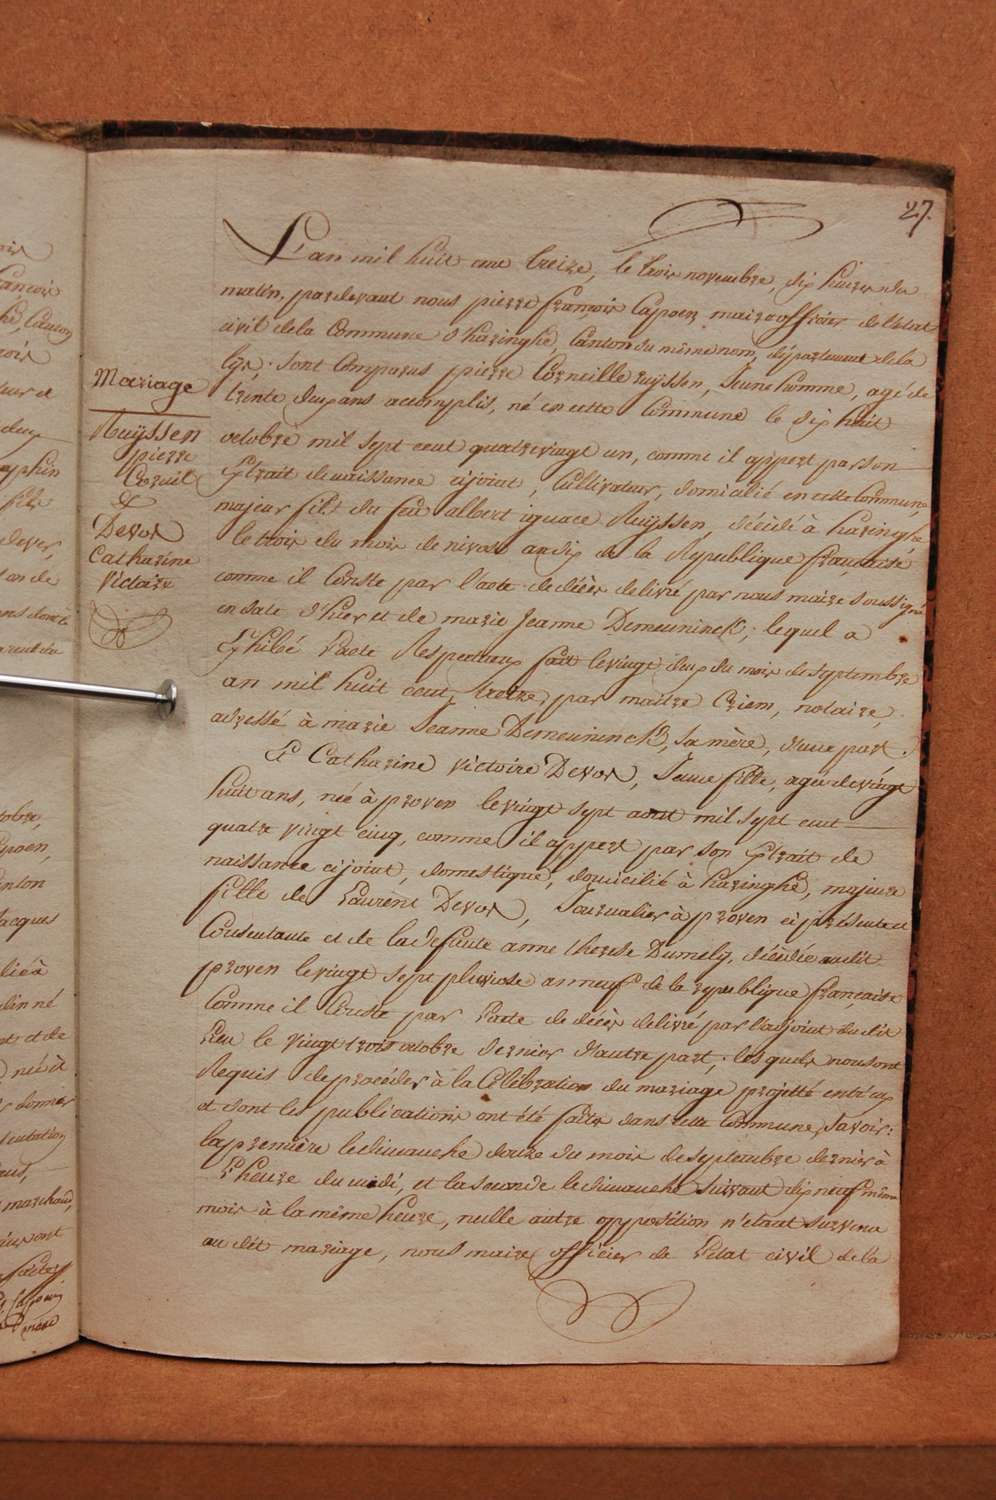 27.
L'an mil huit cent treize, le trois novembre, dix heures du
matin, pardevant nous pierre françois Capoen maire officier de l'état
civil de la Commune d'haringhe, Canton du même nom, département de la
lys. sont Comparus pierre Corneille ruyssen, Jeune homme, agé de
trente deux ans accomplis, né en cette Commune le dix huit
octobre mil sept cent quatrevingt un, comme il appert par son
Extrait de naissance cijoint, Cultivateur, domicilié en cette Commune
majeur fils du feu albert ignace Ruyssen, décédé à haringhe
le trois du mois de nivose an dix de la République française,
comme il Conste par l'acte de décès delivré par nous maire soussigné
en date d'hier et de marie Jeanne Demeuninck; lequel a
Exhibé l'acte Respectueux fait le vingt deux du mois de septembre
an mil huit cent treize, par maitre Criem, notaire,
adressé à marie Jeanne Demeuninck, sa mère, d'une part.
Et Catharine victoire Devos, Jeune fille, agée de vingt
huit ans, née à proven le vingt sept aout mil sept cent
quatre vingt cinq, comme il appert par son Extrait de
naissance cijoint, domestique, domicilié à haringhe, majeure
fille de Laurent Devos, Journalier à proven ci présente et
Consentante et de la defunte anne therese Dumely, décédée audit
proven le vingt sept pluviose an neuf de la republique française
Comme il Conste par l'acte de décès delivré par l'adjoint du dit
lieu le vingt trois octobre dernier d'autre part; les quels nous ont
Requis de procéder à la Célébration du mariage projetté entr'eux
et dont les publications ont été faites dans cette Commune, savoir:
la première le dimanche douze du mois de septembre dernier à
l'heure du midi, et la seconde le dimanche suivant dix neuf même
mois à la même heure, nulle autre opposition n'etant survenu
au dit mariage, nous maire officier de l'état civil de la
Mariage
Ruyssen
pierre
Corneil
&
Devos
Catharine
victoire